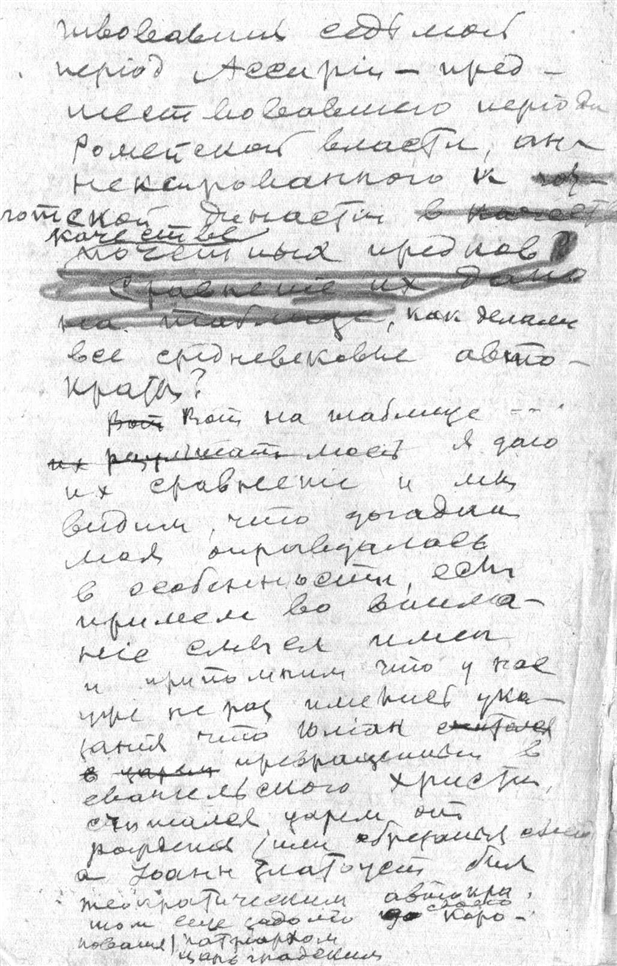 ствовавший седьмой
період Ассиріи – пред –
шествовавшаго періода
Ромейской власти, ан –
нексированного к
готской династіи в
качестве
почетных предков
Сравненіе их дано
на таблице, как делали
все средневековые авто –
краты?
Вот Вот на таблице – – .
их моей я даю
их сравненіе и мы
видим, что догадка
моя оправдалась
в особенности, если
примем во внима –
ніе смысл имен
и припомним что у нас
уже не раз имеются ука –
занія что Юліан считался
в царем превращенный в
евангельского Христа,
считался царем от
рожденія или обрезанія своего
а Іоанн Златоуст был
теократическим автокра –
том еще задолго до своего коро –
нованія патріархом
царьградским